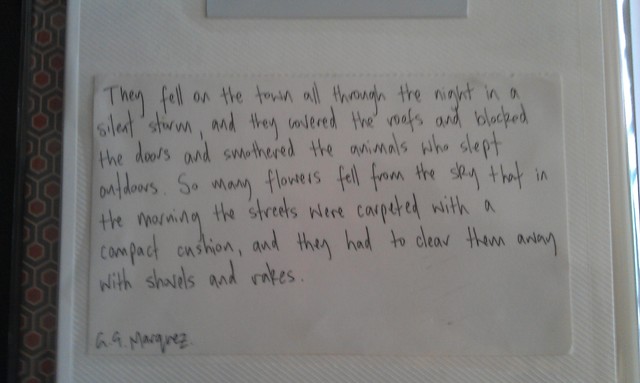 They fell on the town all through the night in a
silent storm, and they covered the roofs and blocked
the doors and smothered the animals who slept
outdoors. So many flowers fell from the sky that in
the morning the streets were carpeted with a
compact cushion, and they had to clear them away
with shovels and rakes.
G.G. Marquez